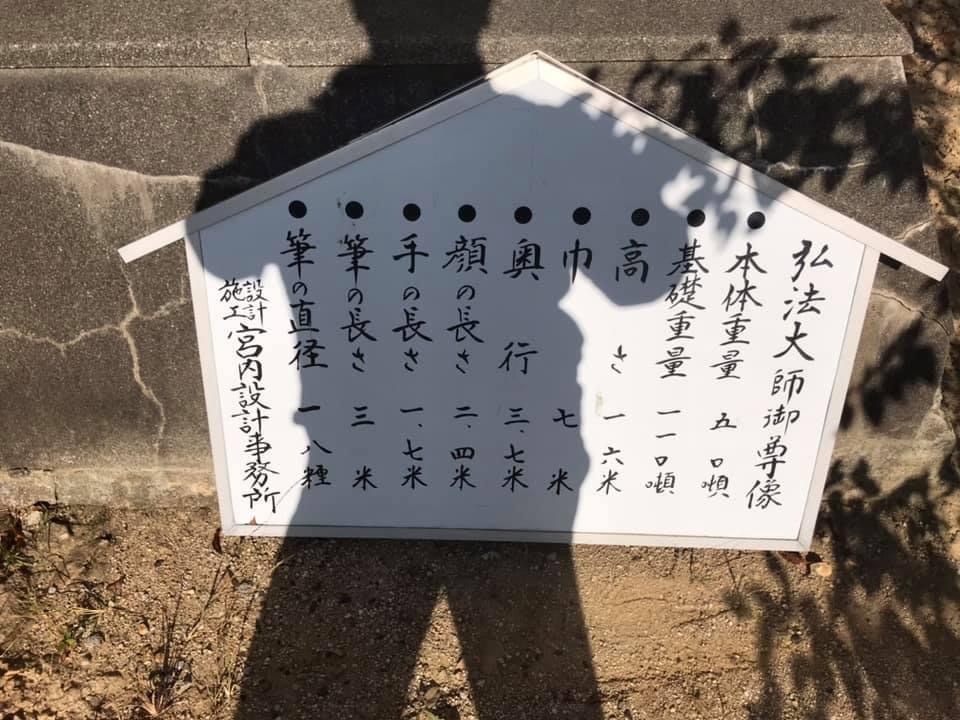 弘法大師御尊像
●本体重量 五〇噸
●基礎重量 一一〇噸
●高さ 一六米
●巾 七米
●奥行 三、七米
●顔の長さ 二、四米
●手の長さ 一、七米
●筆の長さ 三米
●筆の直径 一八糎
設計施工 宮内設計事務所